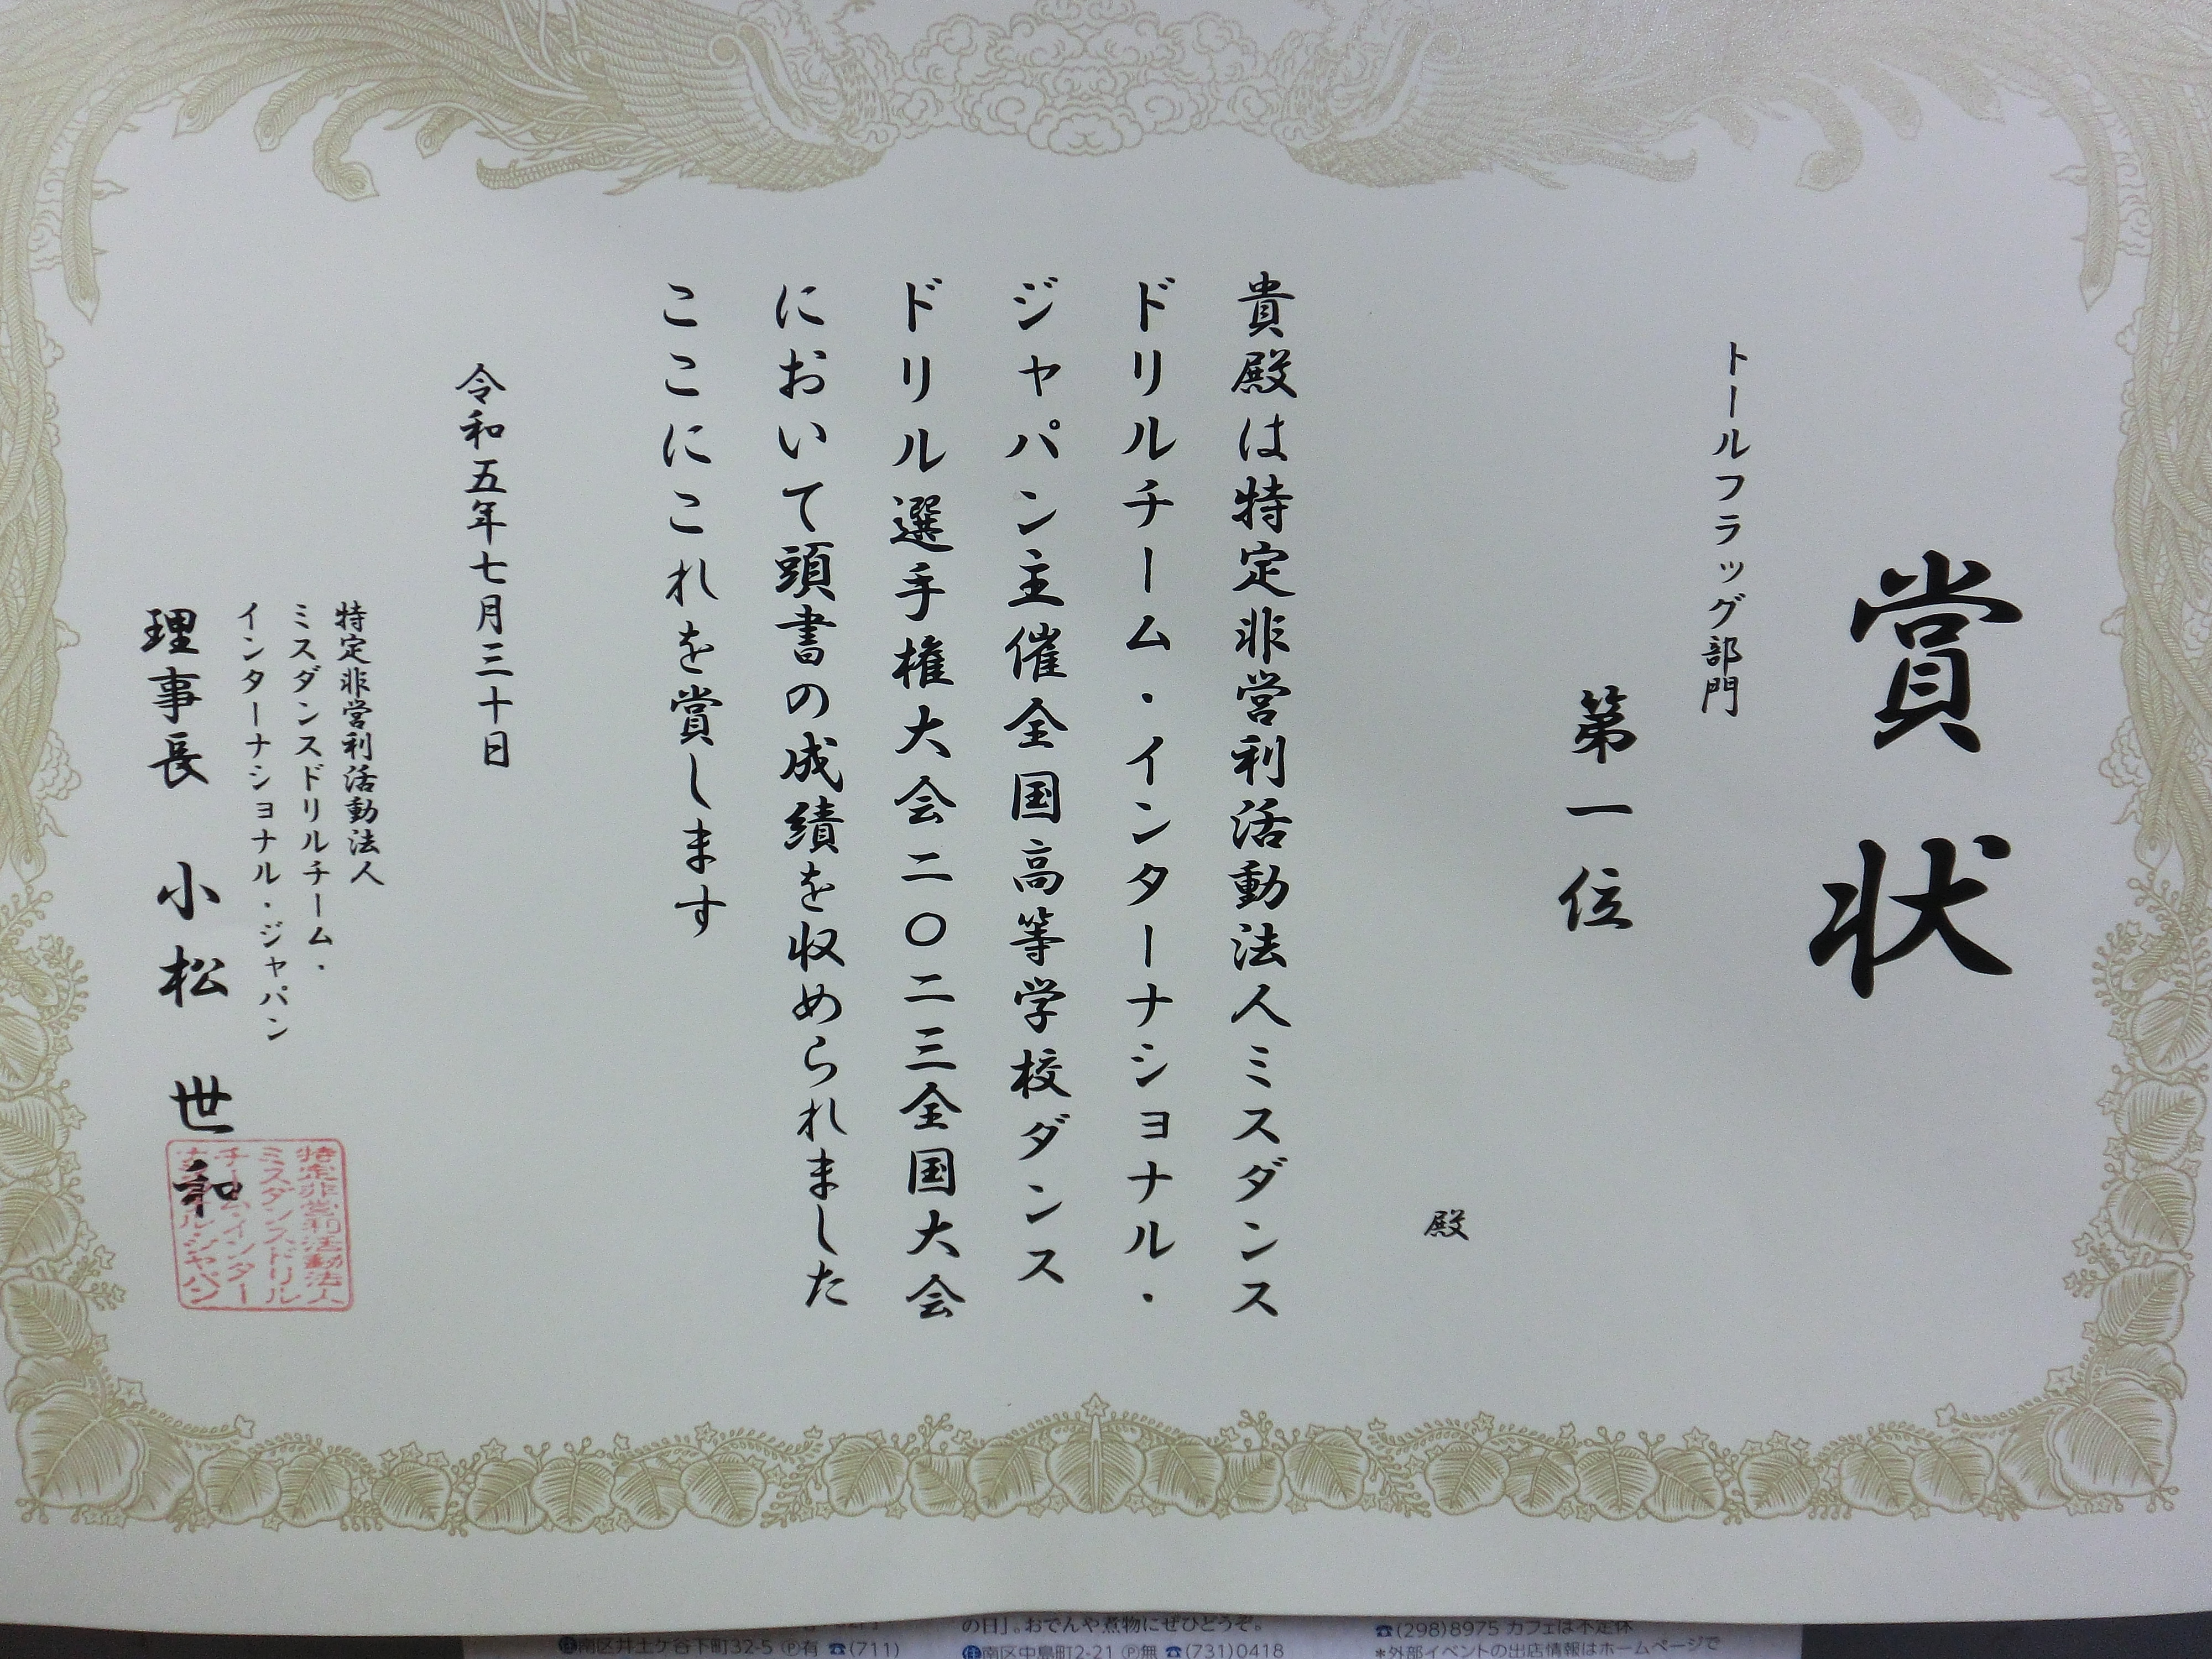 賞状
トールフラッグ部門
第一位
殿
貴殿は特定非営利活動法人ミスダンス
ドリルチーム・インターナショナル・
ジャパン主催全国高等学校ダンス
ドリル選手権大会二〇二三全国大会
において頭書の成績を収められました
ここにこれを賞します
令和五年七月三十日
特定非営利活動法人
ミスダンスドリルチーム・
インターナショナル・ジャパン
理事長 小松 世和
特定非営利活動法人
ミスダンスドリル
チーム・インター
ナショナル・ジャパン
の日」。おでんや煮物にぜひどうぞ。
☎(298)8975 カフェは不定休
住南区井土ケ谷下町32-5 Ⓟ有 ☎(711)
住南区中島町2-21 Ⓟ無 ☎(731)0418
*外部イベントの出店情報はホームページで